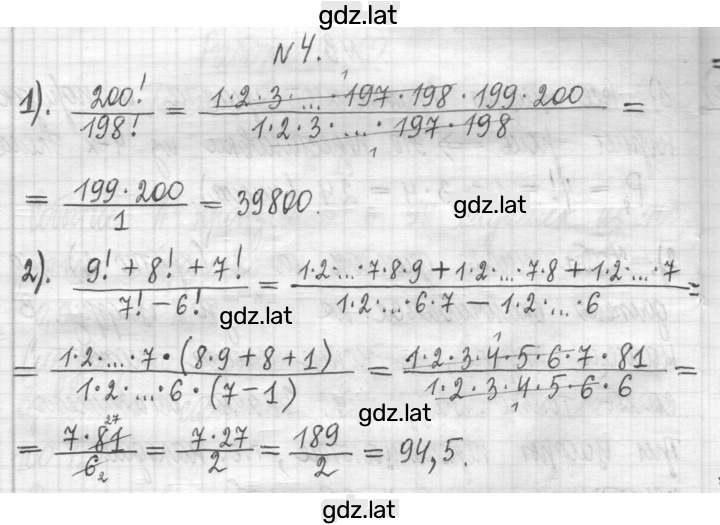 gdz.lat
N 4.
1). 200!/198! = 1·2·3·...·197·198·199·200/1·2·3·...·197·198 =
= 199·200/1 = 39800.
gdz.lat
2). 9! + 8! + 7!/7! – 6! = 1·2·...·7·8·9 + 1·2·...·7·8 + 1·2·...·7/1·2·...·6·7 – 1·2·...·6 =
gdz.lat
= 1·2·...·7·(8·9+8+1)/1·2·...·6·(7–1) = 1·2·3·4·5·6·7·81/1·2·3·4·5·6·6 =
gdz.lat
= 7·81/6 = 7·27/2 = 189/2 = 94,5.
gdz.lat